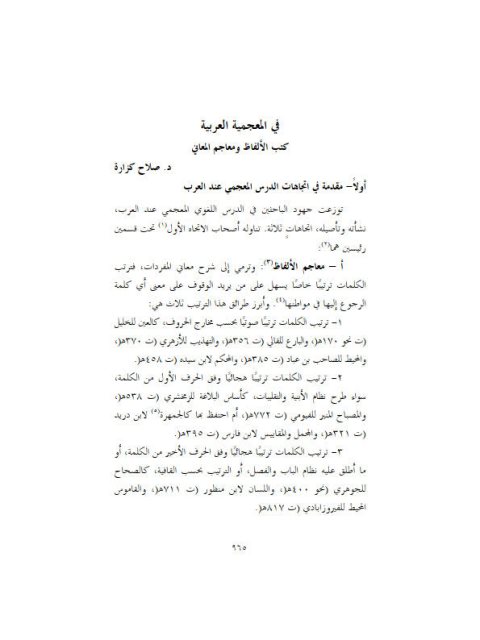 في المعجمية العربية
كتب الألفاظ ومعاجم المعاني
د. صلاح كزارة
أولاً– مقدمة في اتجاهات الدرس المعجمي عند العرب
توزعت جهود الباحثين في الدرس اللغوي المعجمي عند العرب،
نشأته وتأصيله، اتجاهاتٍ ثلاثة. تناوله أصحاب الاتجاه الأول(١) تحت قسمين
رئيسين هما(٢):
أ – معاجم الألفاظ(٣): وترمي إلى شرح معاني المفردات، فترتب
الكلمات ترتيبًا خاصًا يسهل على من يريد الوقوف على معنى أي كلمة
الرجوع إليها في مواطنها(٤). وأبرز طرائق هذا الترتيب ثلاث هي:
١– ترتيب الكلمات ترتيبًا صوتيًا بحسب مخارج الحروف، كالعين للخليل
(ت نحو ١٧٠ه(، والبارع للقالي (ت ٣٥٦ه(، والتهذيب للأزهري (ت ٣٧٠ه(،
والمحيط للصاحب بن عباد (ت ٣٨٥ه(، والمحكم لابن سيده (ت ٤٥٨ه(.
٢– ترتيب الكلمات ترتيبًا هجائيًا وفق الحرف الأول من الكلمة،
سواء طرح نظام الأبنية والتقليبات، كأساس البلاغة للزمخشري (ت ٥٣٨ه(،
والمصباح المنير للفيومي (ت ٧٧٢ه(، أم احتفظ بها كالجمهرة(٥) لابن دريد
(ت ٣٢١ه(، والمجمل والمقاييس لابن فارس (ت ٣٩٥ه(.
٣– ترتيب الكلمات ترتيبًا هجائيًا وفق الحرف الأخير من الكلمة، أو
ما أطلق عليه نظام الباب والفصل، أو الترتيب بحسب القافية، كالصحاح
للجوهري (نحو ٤٠٠ه(، واللسان لابن منظور (ت ٧١١ه(، والقاموس
المحيط للفيروزابادي (ت ٨١٧ه(.
٩٦٥